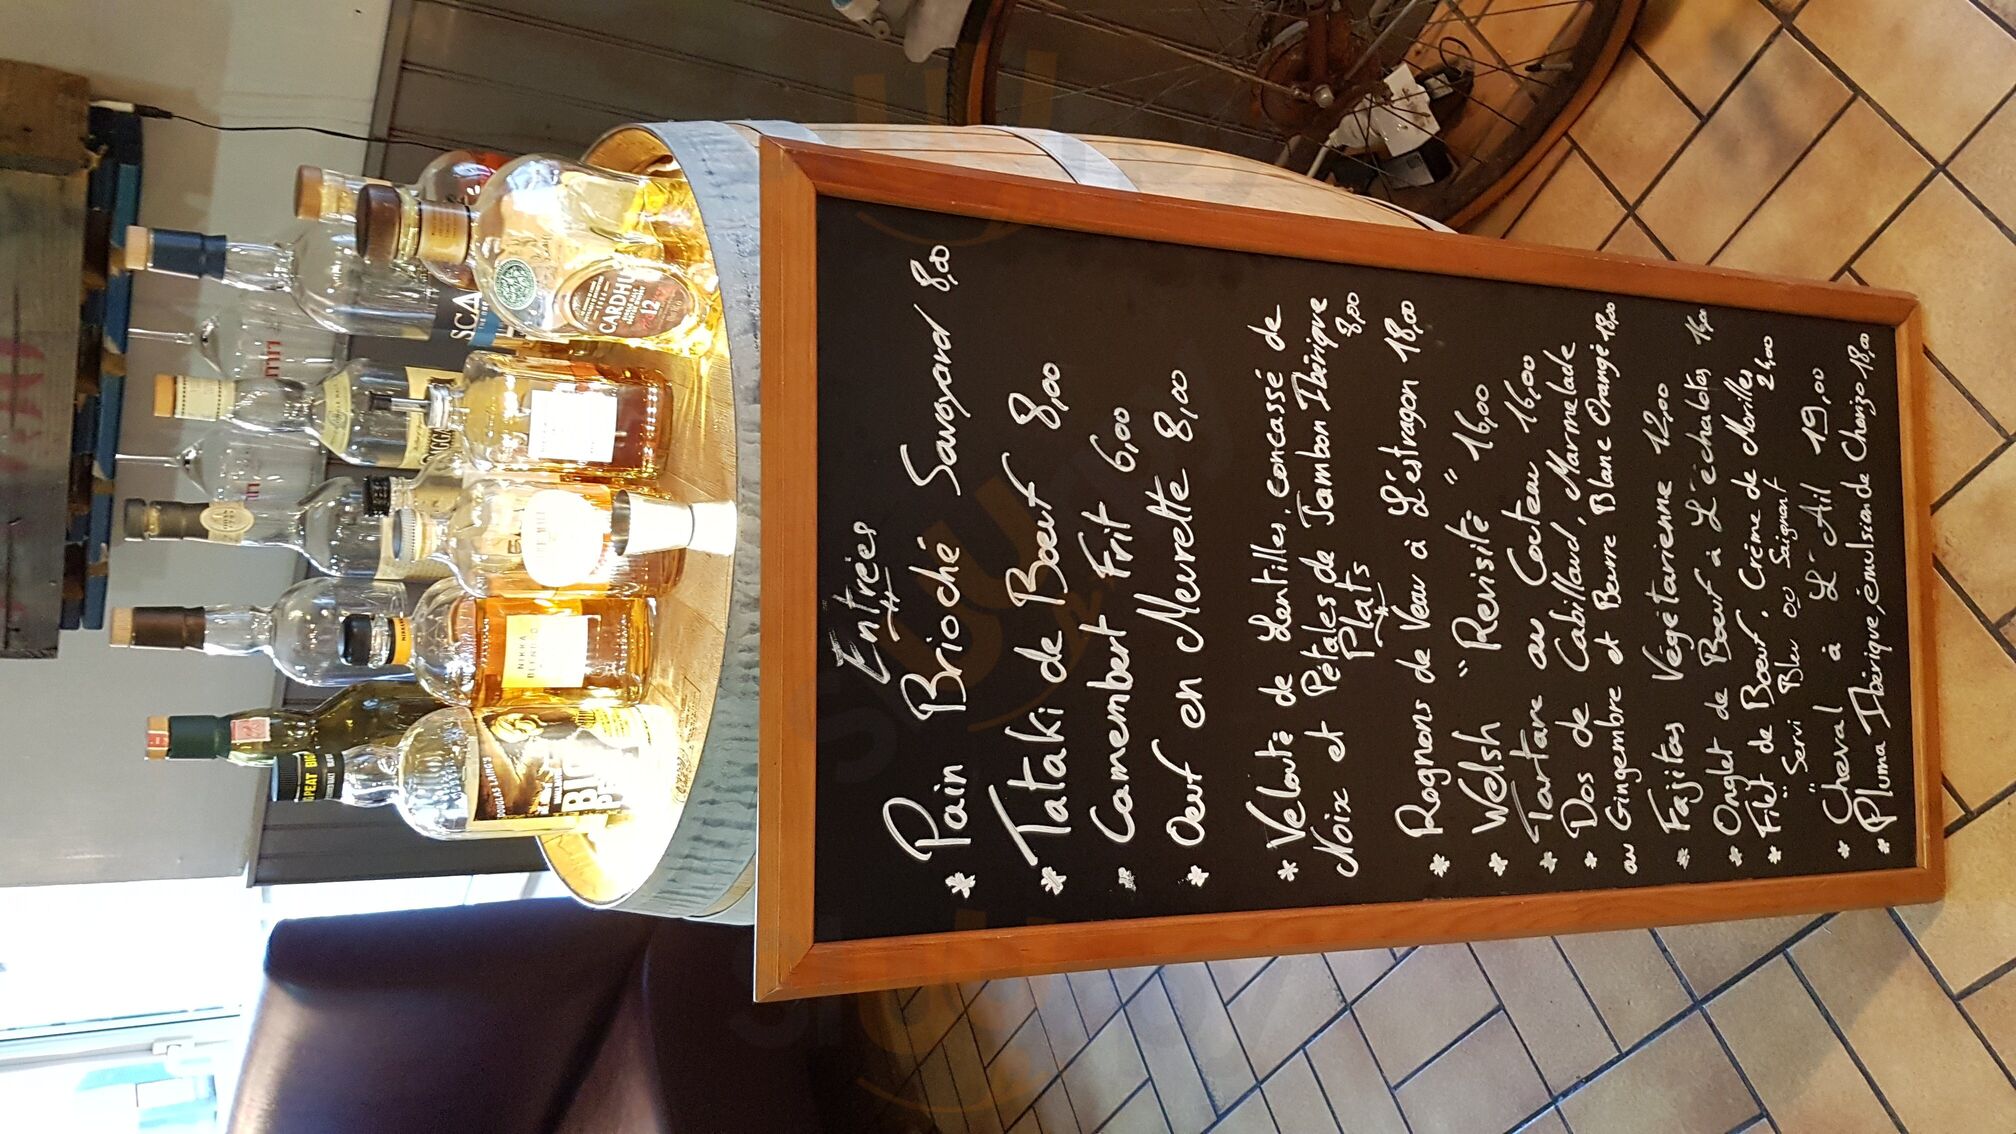 Entrées
* Pain Brioché Savoyard 8,00
* Tataki de Bœuf 8,00
* Camembert Frit 6,00
* Oeuf en Meurette 8,00
* Velouté de Lentilles, concassé de
Noix et Pétales de Jambon Ibérique
8,00
Plats
* Rognons de Veau à L'éstragon 18,00
* Welsh "Revisité" 16,00
* Tartare au Couteau 16,00
* Dos de Cabillaud, Marmelade
au Gingembre et Beurre Blanc Orange 18,00
* Fajitas Végétarienne 12,00
* Onglet de Bœuf à L'échalotes
* Filet de Bœuf, Crème de Morilles
24,00
Servi Bleu ou Saignant
* Cheval à L'Ail 19,00
* Pluma Ibérique, émulsion de Chorizo 18,00
CARDHU
12
SCA
NIKKA
BLENDED
DOUGLAS LAING'S
BIG
PEAT
PEAT BIG